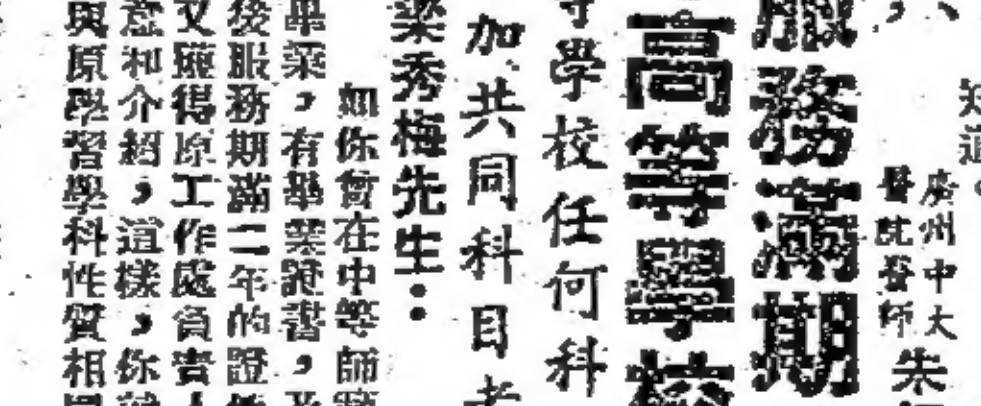 知道。
廣州中大
醫院醫師朱
服務滿期
高等學校
等學校任何科
加共同科目者
梁秀梅先生：
如你曾在中等師
畢業，有畢業證書，及
後服務期滿二年的證
又獲得原工作處負責人
意和介紹，這樣，你
與原學習學科性質相同